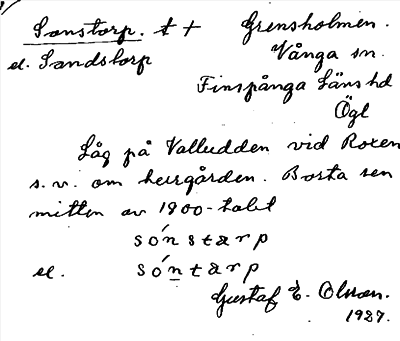 Sonstorp. t + Grensholmen.
el. Sandstorp Vånga sn.
Finspånga Läns hd
Ögl
Låg på Valludden vid Roxen
s.v. om herrgården. Borta sen
mitten av 1800-talet
sónstarp
el. sóntarp
Gustaf E. Olsson.
1927.